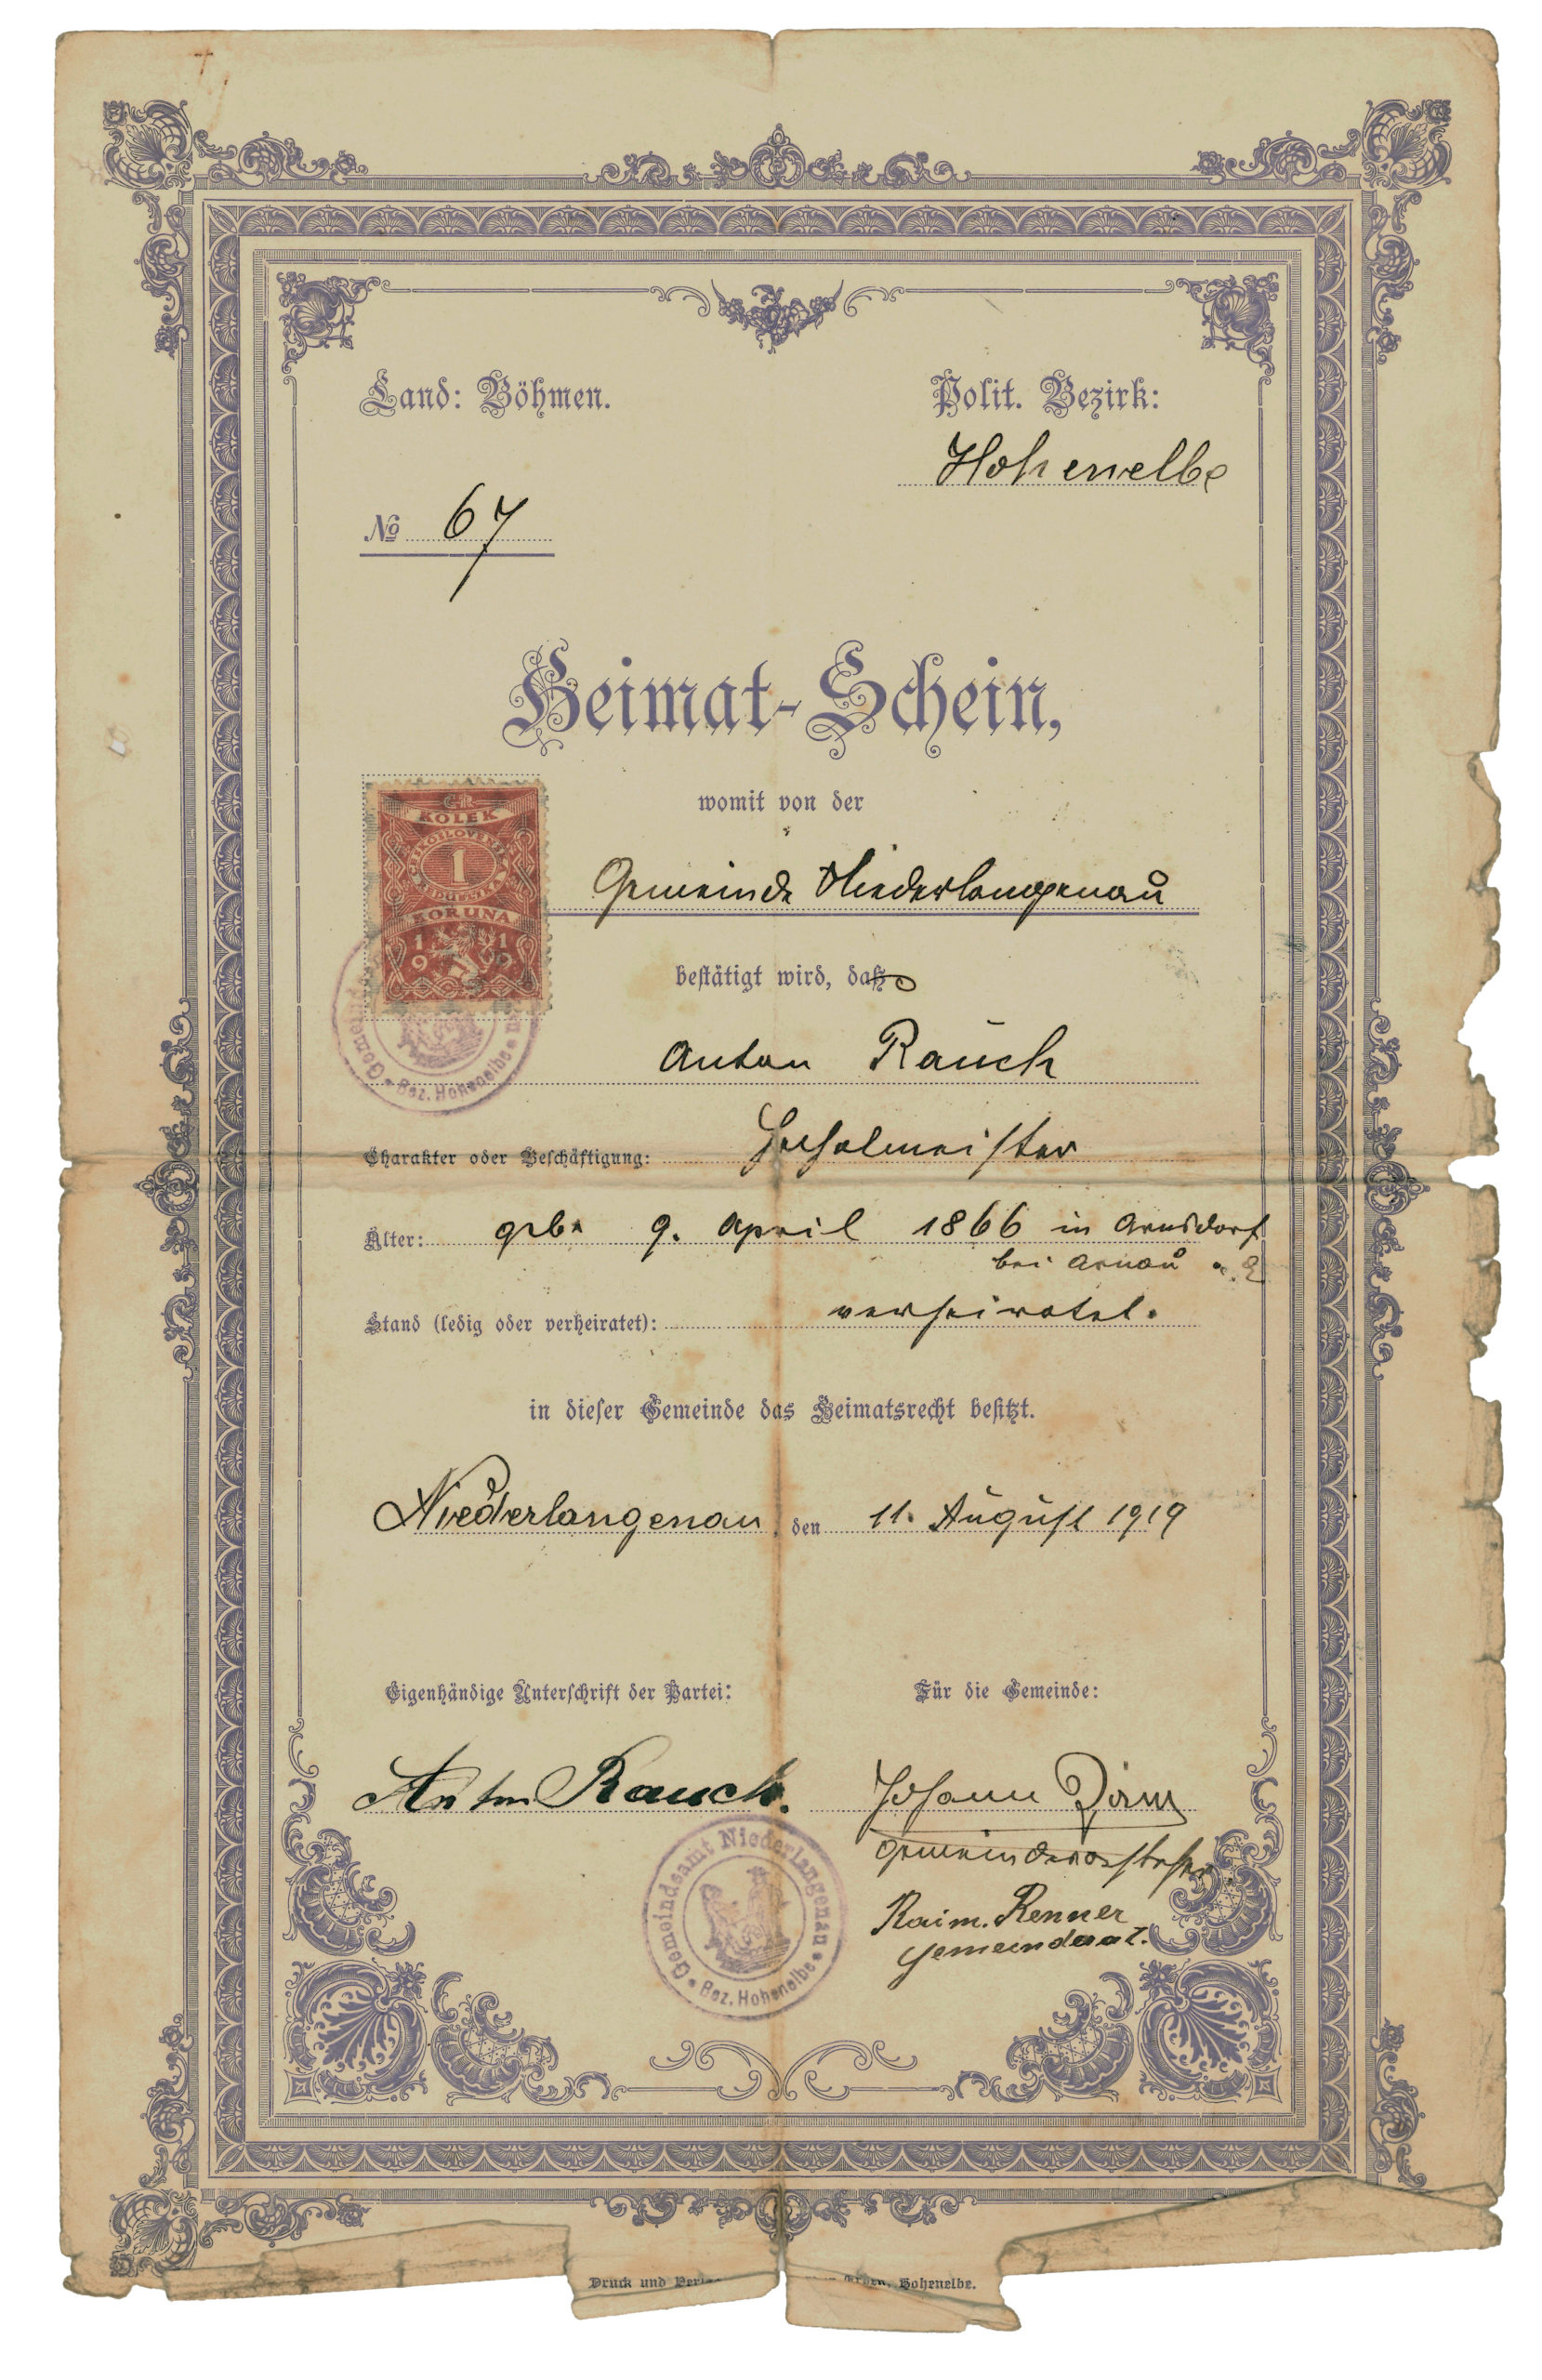 Land: Böhmen.
Polit. Bezirk:
Hohenelbe
№ 67
Heimat-Schein,
womit von der
KOLEK
1
KORUNA
1919
Gemeinde Niederlangenau
bestätigt wird, daß
Anton Rauch
Bez. Hohenelbe
Charakter oder Beschäftigung:
Alter: geb. 9. April 1866 in Arnsdorf
bei Arnau a. E
Stand (ledig oder verheiratet): verheiratet.
in dieser Gemeinde das Heimatsrecht besitzt.
Niederlangenau, den 11. August 1919
Eigenhändige Unterschrift der Partei:
Für die Gemeinde:
Anton Rauch.
Johann
Gemeindevorsteher
Raim. Renner
Gemeinderat.
Gemeindeamt Niederlangenau
Bez. Hohenelbe
Druck und
Erben, Hohenelbe.